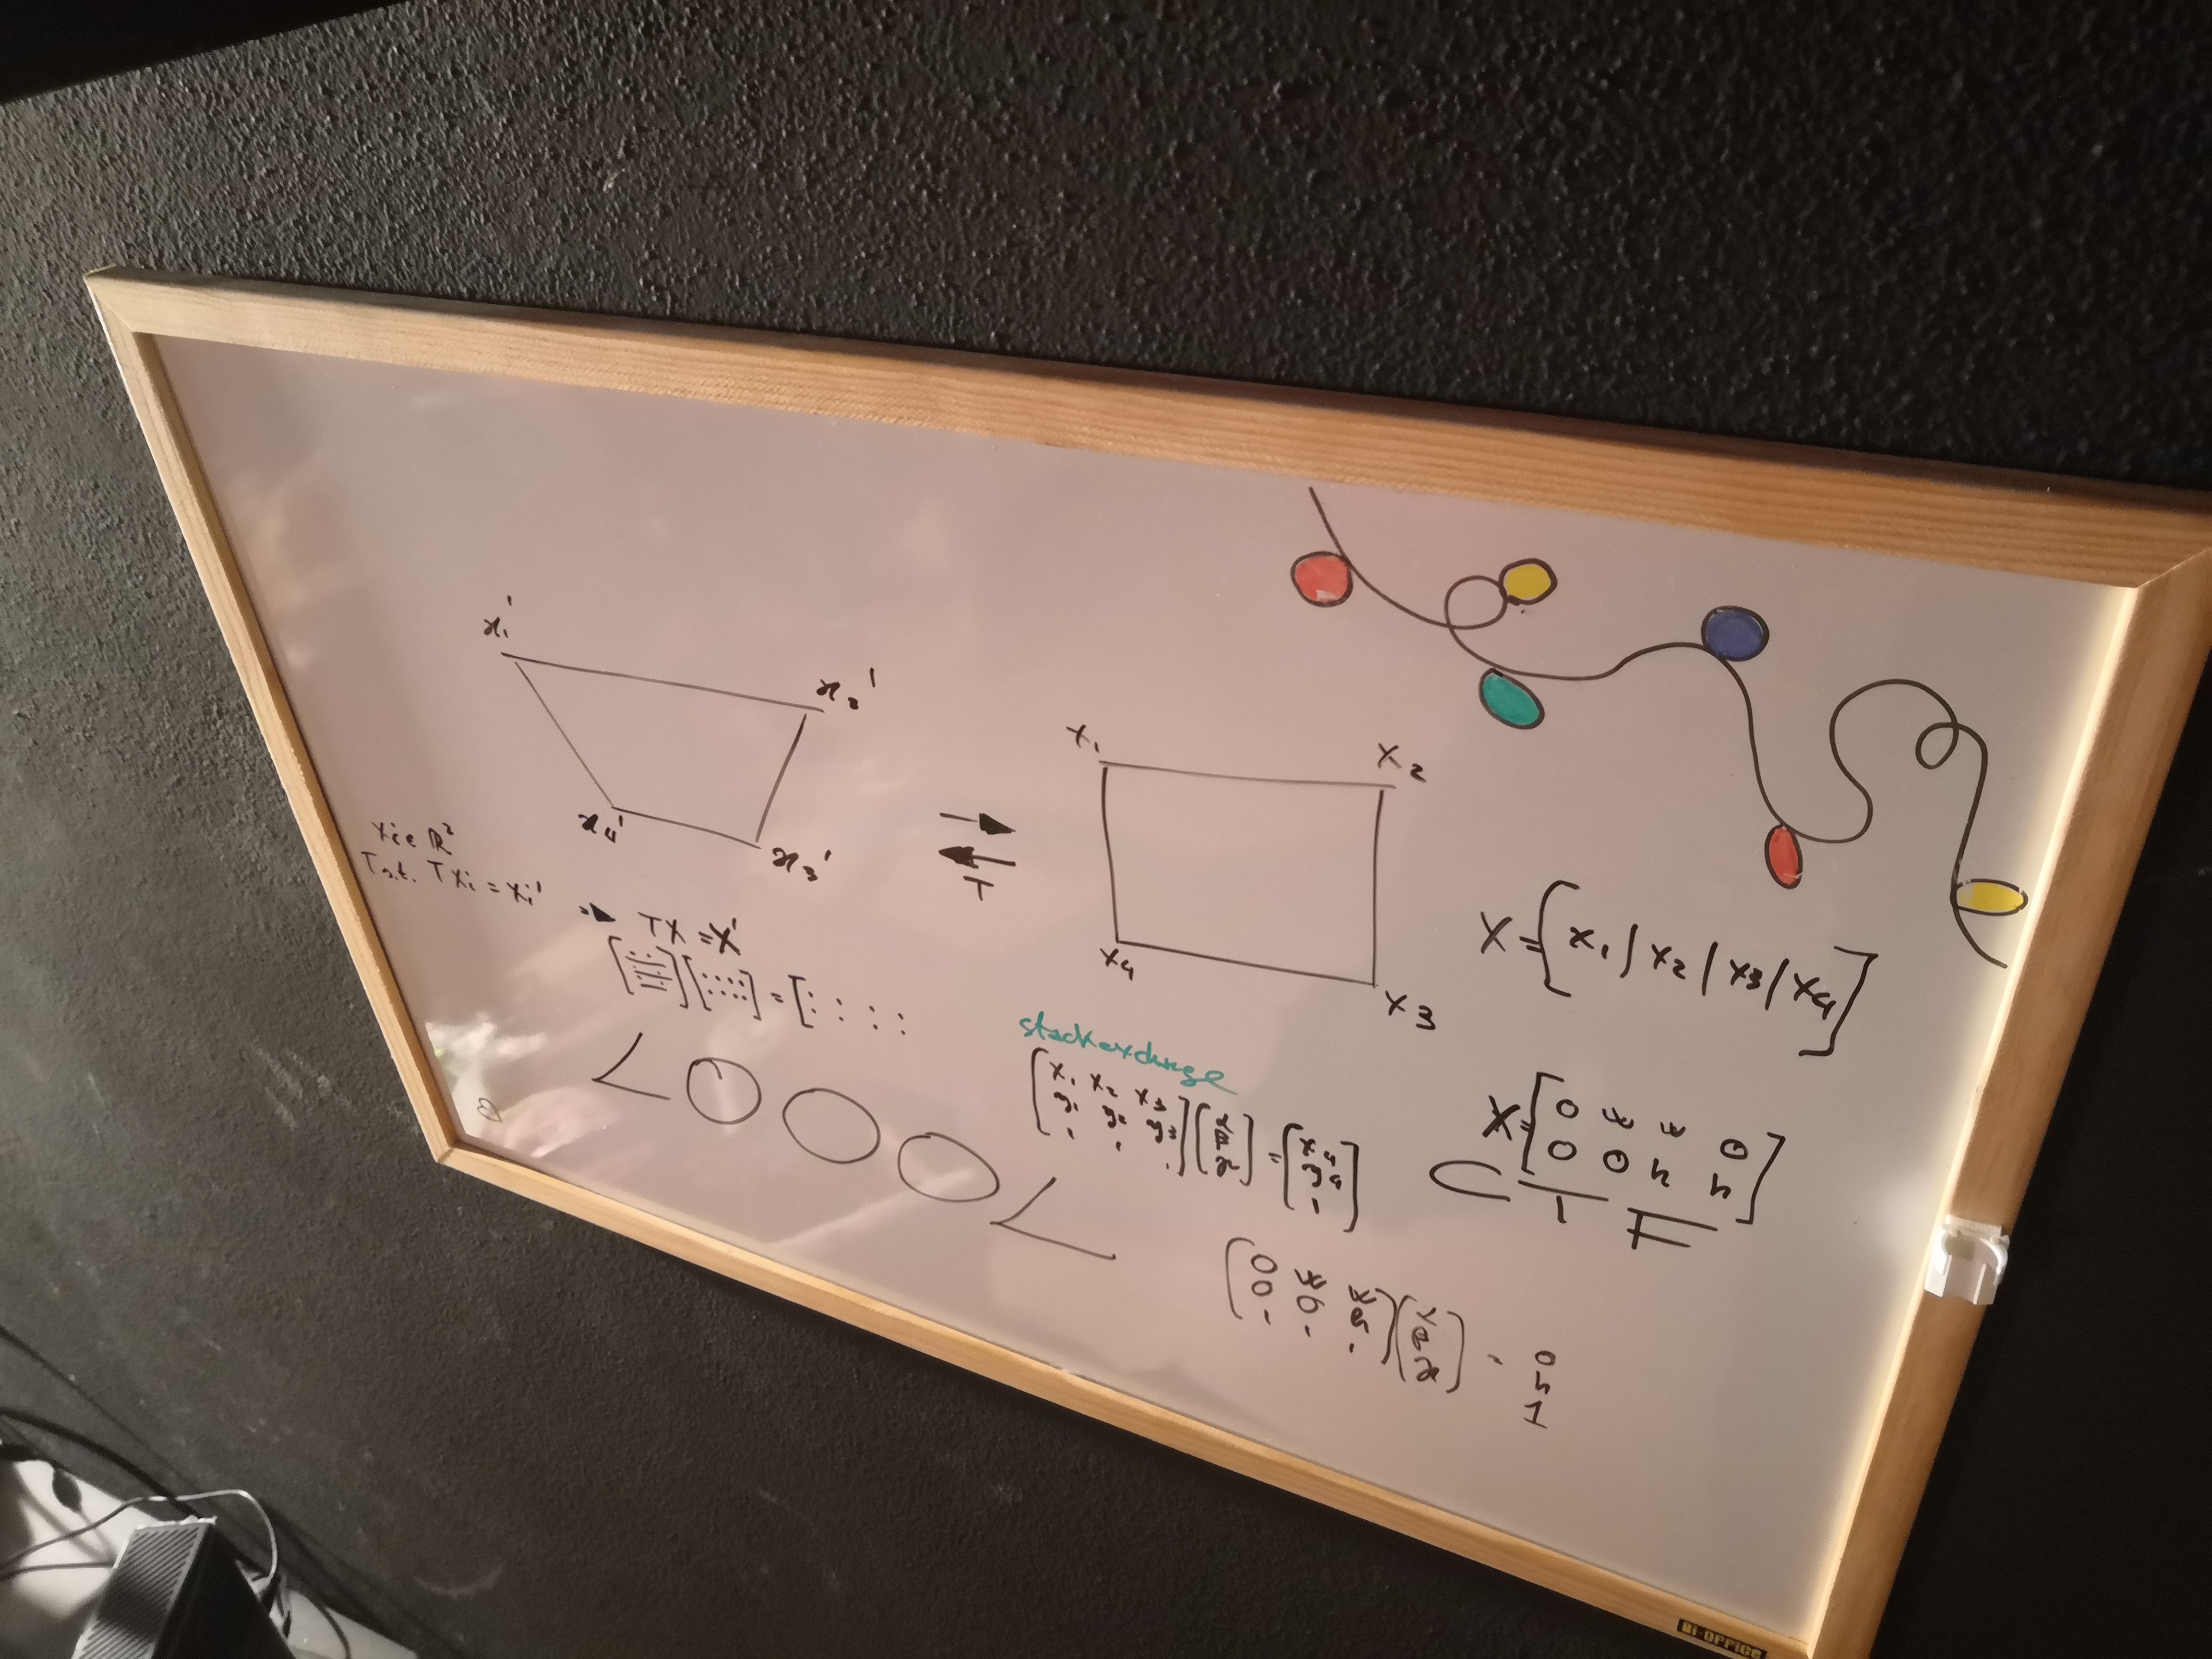 x₁'
x₂'
x₄'
x₃'
T
x₁
x₂
x₄
x₃
xᵢ ∈ ℝ²
T s.t. Txᵢ = xᵢ'
TX = X'
X = [x₁ | x₂ | x₃ | x₄]
stackexchange
[x₁ x₂ x₃
y₁ y₂ y₃
1 1 1] = [x₄
y₄
1]
X = [0 w w 0
0 0 h h]
CTF
LOOOL
[0 w w
0 0 h
1 1 1] = 0
h
1
Bi-OFFICE